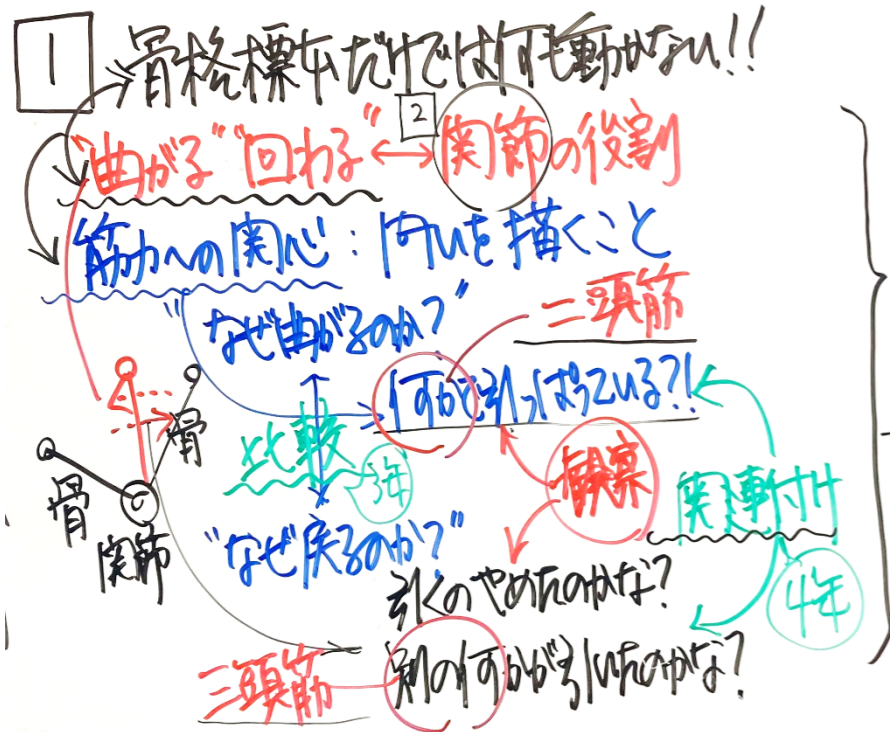 1 骨格標本だけでは何も動かない!!
"曲がる" "回わる" ↔ 2 関節の役割
筋力への関心:問いを描くこと
"なぜ曲がるのか?"
二頭筋
何かで引っぱっている?!
骨
比較
3年
骨
関節
観察
関連付け
"なぜ戻るのか?"
引くのやめたのかな?
4年
三頭筋
別の何かが引いたのかな?